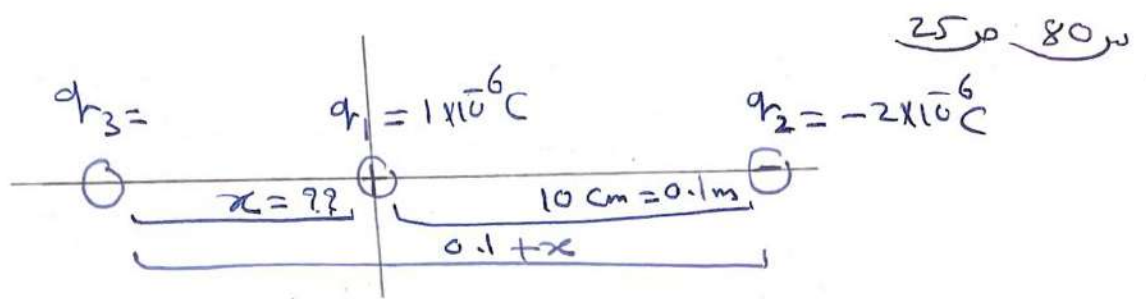 س 80 ص 25
q₃ = q₁ = 1×10⁻⁶ C q₂ = -2×10⁻⁶ C
x = ?? 10 cm = 0.1 m
0.1 + x